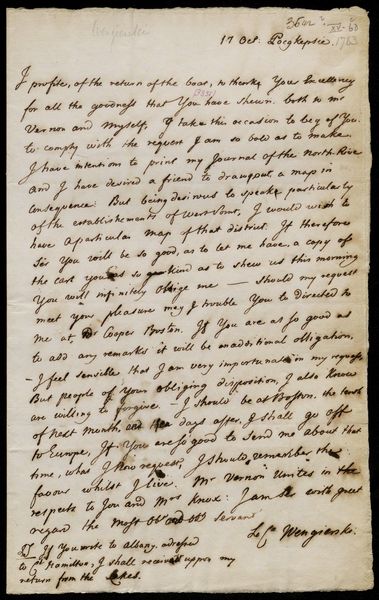 Wengierski
17 Oct. Pocgkepsie 1783
I profite, of the return of the boat, to thank You Excellency
for all the goodness that You have shewn both to Mr
Vernon and Myself, I take this occasion to beg of You
to comply with the request I am so bold as to make
I have intentions to print my Journal of the North River
and I have desired a friend to draught a map in
consequence. But being desirous to speake particularly
of the establishements of West Point, I would wish to
have a particular map of that district. If therefore
Sir You will be so good, as to let me have a copy of
the cart you so kind as to shew us this morning
You will infinitely oblige me — should my request
meet your pleasure may I trouble You to directed to
me at Dr Cooper Boston. If You are so good as
to add any remarks it will be an additional obligation,
— I feel sensible that I am very importunate in my requests
But people of your obliging disposition, I also know
are willing to forgive. I should be at Boston the tenth
of Next Month and days after, I shall go off
to Europe, If You are so good to send me about that
time, what I now request, I should remember the
favour whilst I live. Mr Vernon Unites in the
respects to You and Mrs Knox: I am with great
regard the Most Ob and servant
Wengierski.
If You wrote to Albany, adressed
to Hamilton, I shall receive upon my
return from the Lakes.